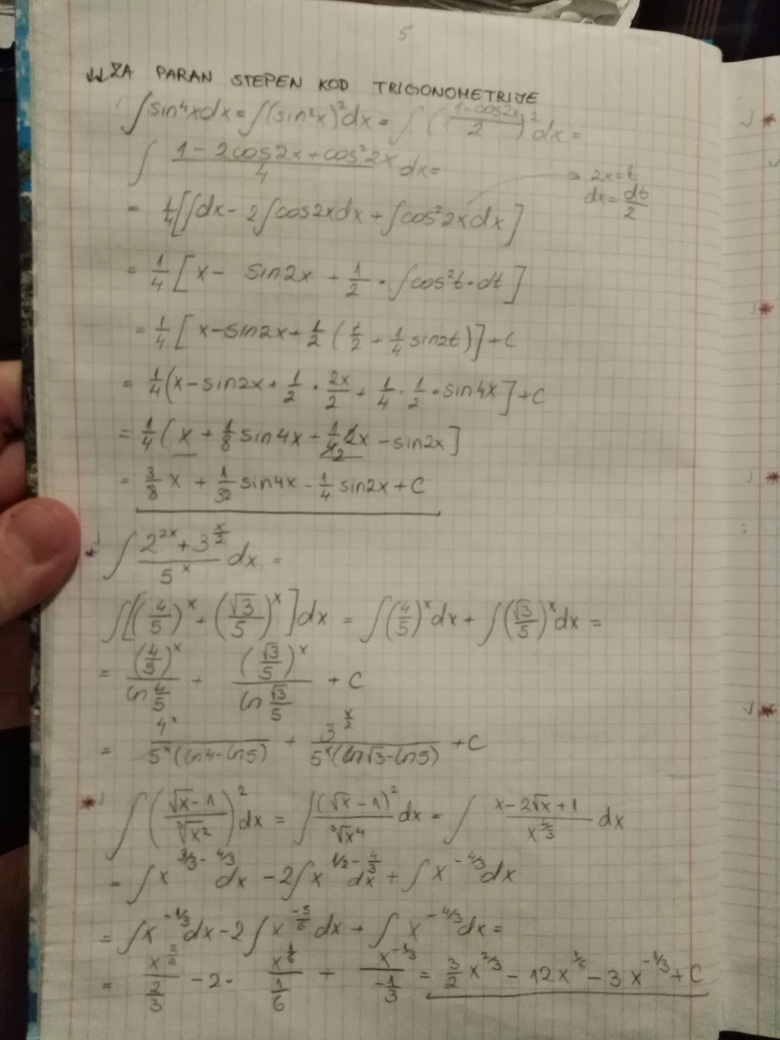 5
ZA PARAN STEPEN KOD TRIGONOMETRIJE
∫sin⁴xdx = ∫(sin²x)²dx = ∫((1-cos2x)/2)²dx =
∫ (1-2cos2x+cos²2x)/4 dx =
2x=t
dx=dt/2
= 1/4[∫dx - 2∫cos2xdx + ∫cos²2xdx]
= 1/4[x - sin2x + 1/2 · ∫cos²t·dt]
= 1/4[x-sin2x+1/2(t/2 + 1/4 sin2t)]+C
= 1/4(x-sin2x+1/2 · 2x/2 + 1/4 · 1/2 · sin4x]+C
= 1/4(x + 1/8 sin4x + 1/2x - sin2x]
= 3/8 x + 1/32 sin4x - 1/4 sin2x + C
* ∫ (2^(2x) + 3^(x/2))/5^x dx =
∫[(4/5)^x + (√3/5)^x]dx = ∫(4/5)^x dx + ∫(√3/5)^x dx =
= (4/5)^x/(ln 4/5) + (√3/5)^x/(ln √3/5) + C
= 4^x/(5^x(ln4-ln5)) + 3^(x/2)/(5^x(ln√3-ln5)) + C
* ∫((√x-1)/∛x²)²dx = ∫(√x-1)²/∛x⁴ dx = ∫ (x-2√x+1)/x^(4/3) dx
= ∫x^(3/3-4/3) dx - 2∫x^(1/2-4/3) dx + ∫x^(-4/3)dx
= ∫x^(-1/3)dx - 2∫x^(-5/6)dx + ∫x^(-4/3)dx =
= x^(2/3)/(2/3) - 2· x^(1/6)/(1/6) + x^(-1/3)/(-1/3) = 3/2 x^(2/3) - 12x^(1/6) - 3x^(-1/3) + C